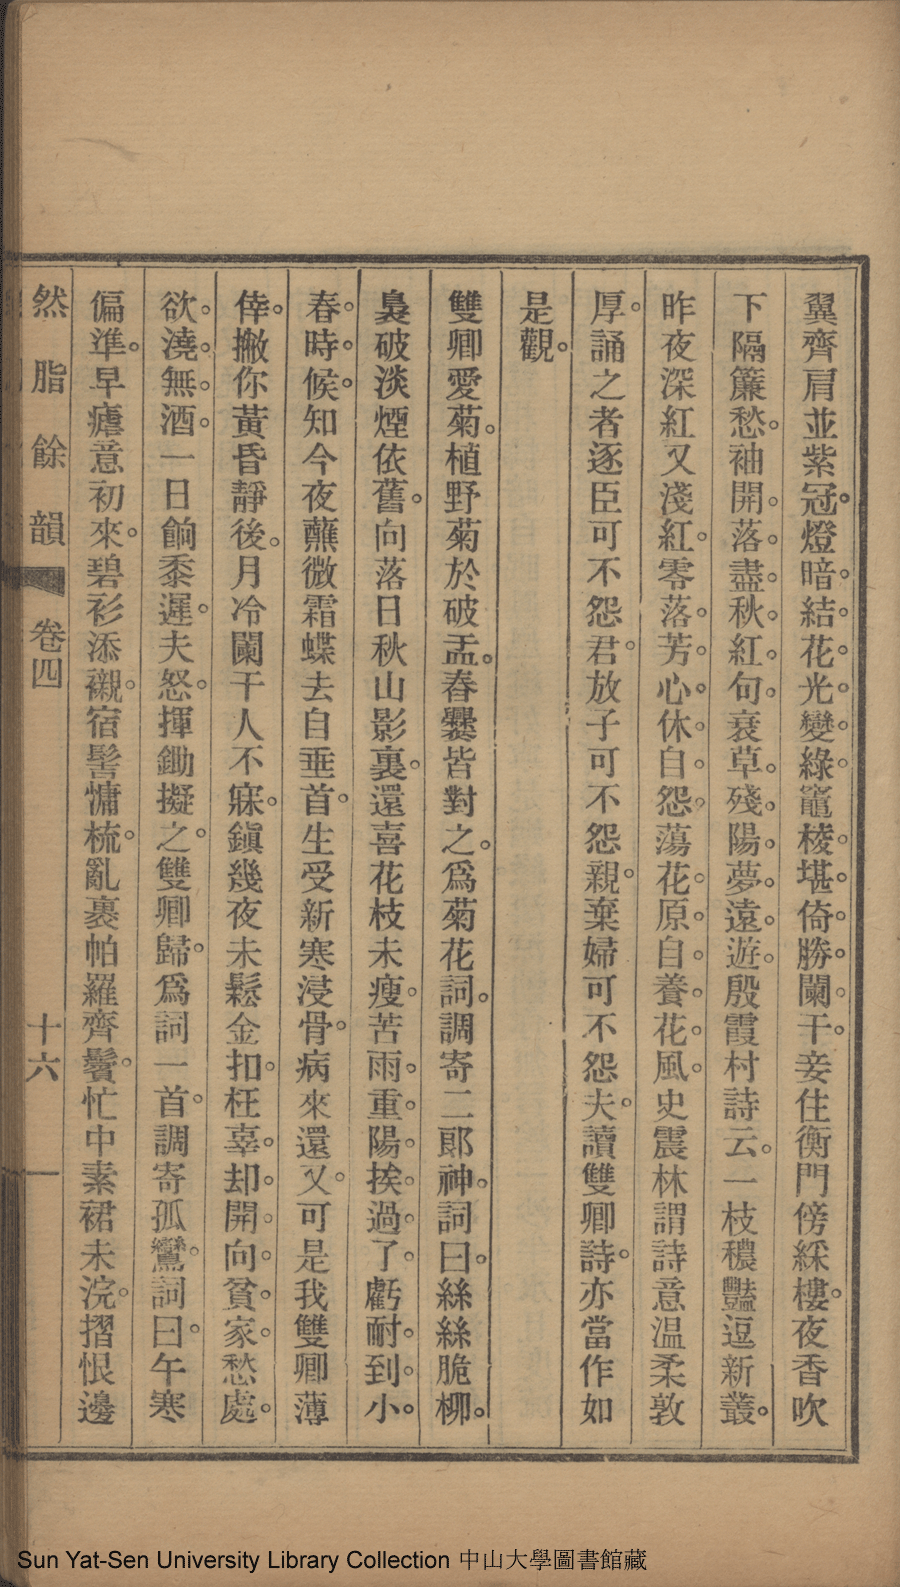 翼齊肩並紫冠。燈暗。結。花。光。變。綠。竈。棱。堪。倚。勝。闌。干。妾住衡門傍綵樓。夜香吹
下隔簾愁。袖開。落。盡。秋。紅。句。衰草。殘。陽。夢。遠。遊。殷霞村詩云。一枝穠豔逗新叢。
昨夜深紅又淺紅。零落。芳。心。休。自。怨。蕩花。原。自。養。花。風。史震林謂詩意温柔敦
厚。誦之者逐臣可不怨君。放子可不怨親。棄婦可不怨夫。讀雙卿詩。亦當作如
是觀。
雙卿愛菊。植野菊於破盂。春爨皆對之。爲菊花詞。調寄二郞神。詞曰。絲絲脆柳。
裊破淡煙依舊。向落日秋山影裏。還喜花枝未瘦。苦雨。重。陽。挨。過。了。虧耐。到。小。
春。時。候。知今夜蘸微霜蝶去自垂首。生受新寒浸骨。病來還又。可是我雙卿薄
倖。撇你黃昏靜後。月冷闌干人不寐。鎭幾夜未鬆金扣。枉辜。却。開。向。貧。家。愁。處。
欲。澆。無。酒。一日餉黍遲。夫怒。揮鋤擬之。雙卿歸。爲詞一首。調寄孤鸞。詞曰。午寒
偏準。早瘧意初來。碧衫添襯。宿髻慵梳。亂裹帕羅齊鬢。忙中素裙未浣。摺恨邊
然脂餘韻
卷四
十六
Sun Yat-Sen University Library Collection 中山大學圖書館藏